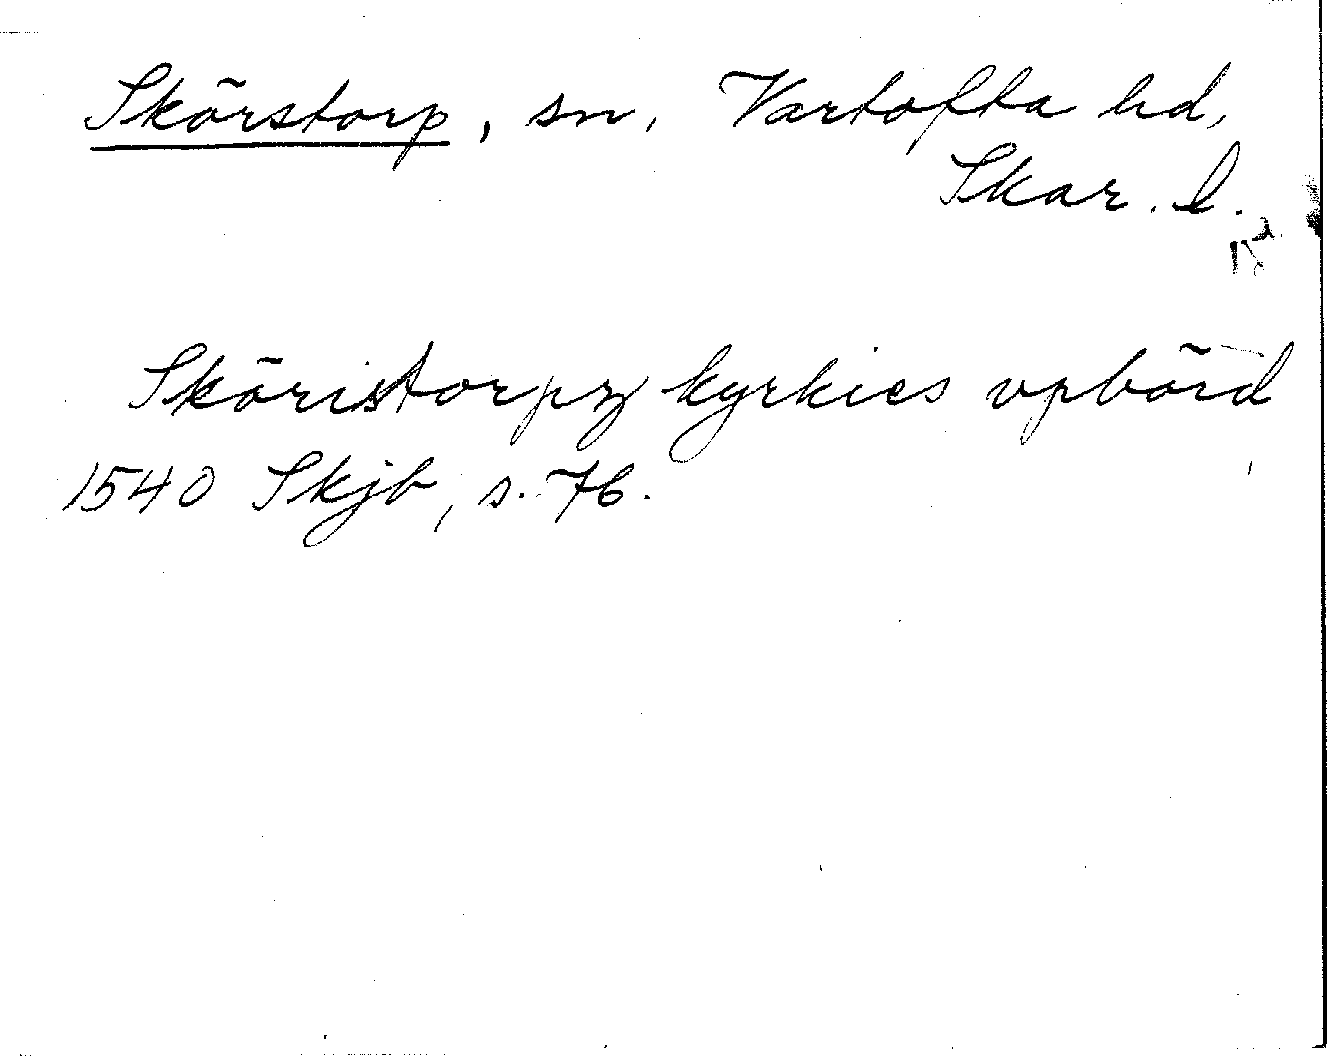 Skörstorp, sn, Vartofta hd,
Skar. l.
Sköristorpz kyrkies vpbörd
1540 Skjb, s. 76.